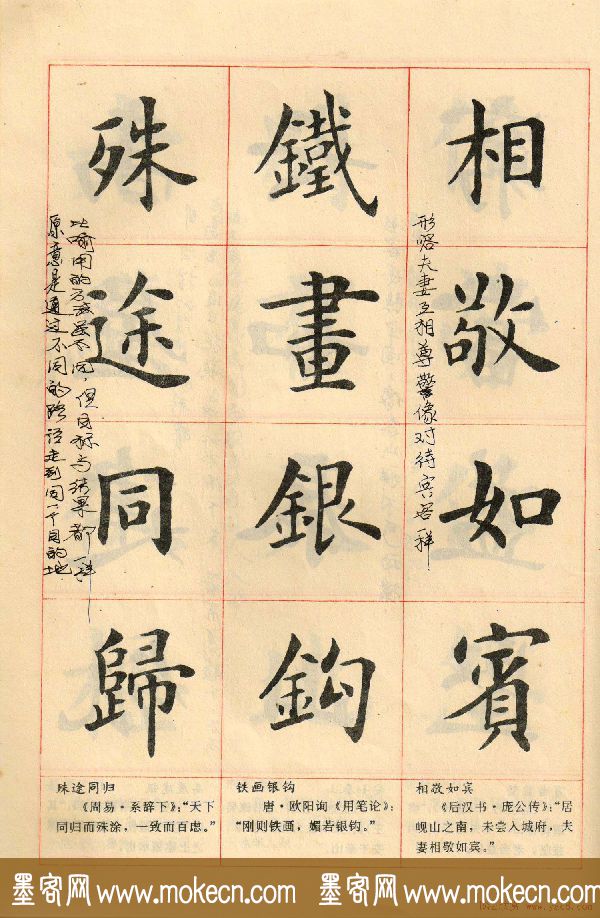 相敬如賓
鐵畫銀鈎
殊途同歸
形容夫妻互相尊敬像对待宾客一样
原意是通过不同的路径走到同一个目的地
比喻用的方法虽不同，但目标与结果都一样
相敬如宾
《后汉书·庞公传》：“居
岘山之南，未尝入城府，夫
妻相敬如宾。”
铁画银钩
唐·欧阳询《用笔论》：
“刚则铁画，媚若银钩。”
殊途同归
《周易·系辞下》：“天下
同归而殊涂，一致而百虑。”
墨客网 www.mokecn.com 墨客网 www.mokecn.com